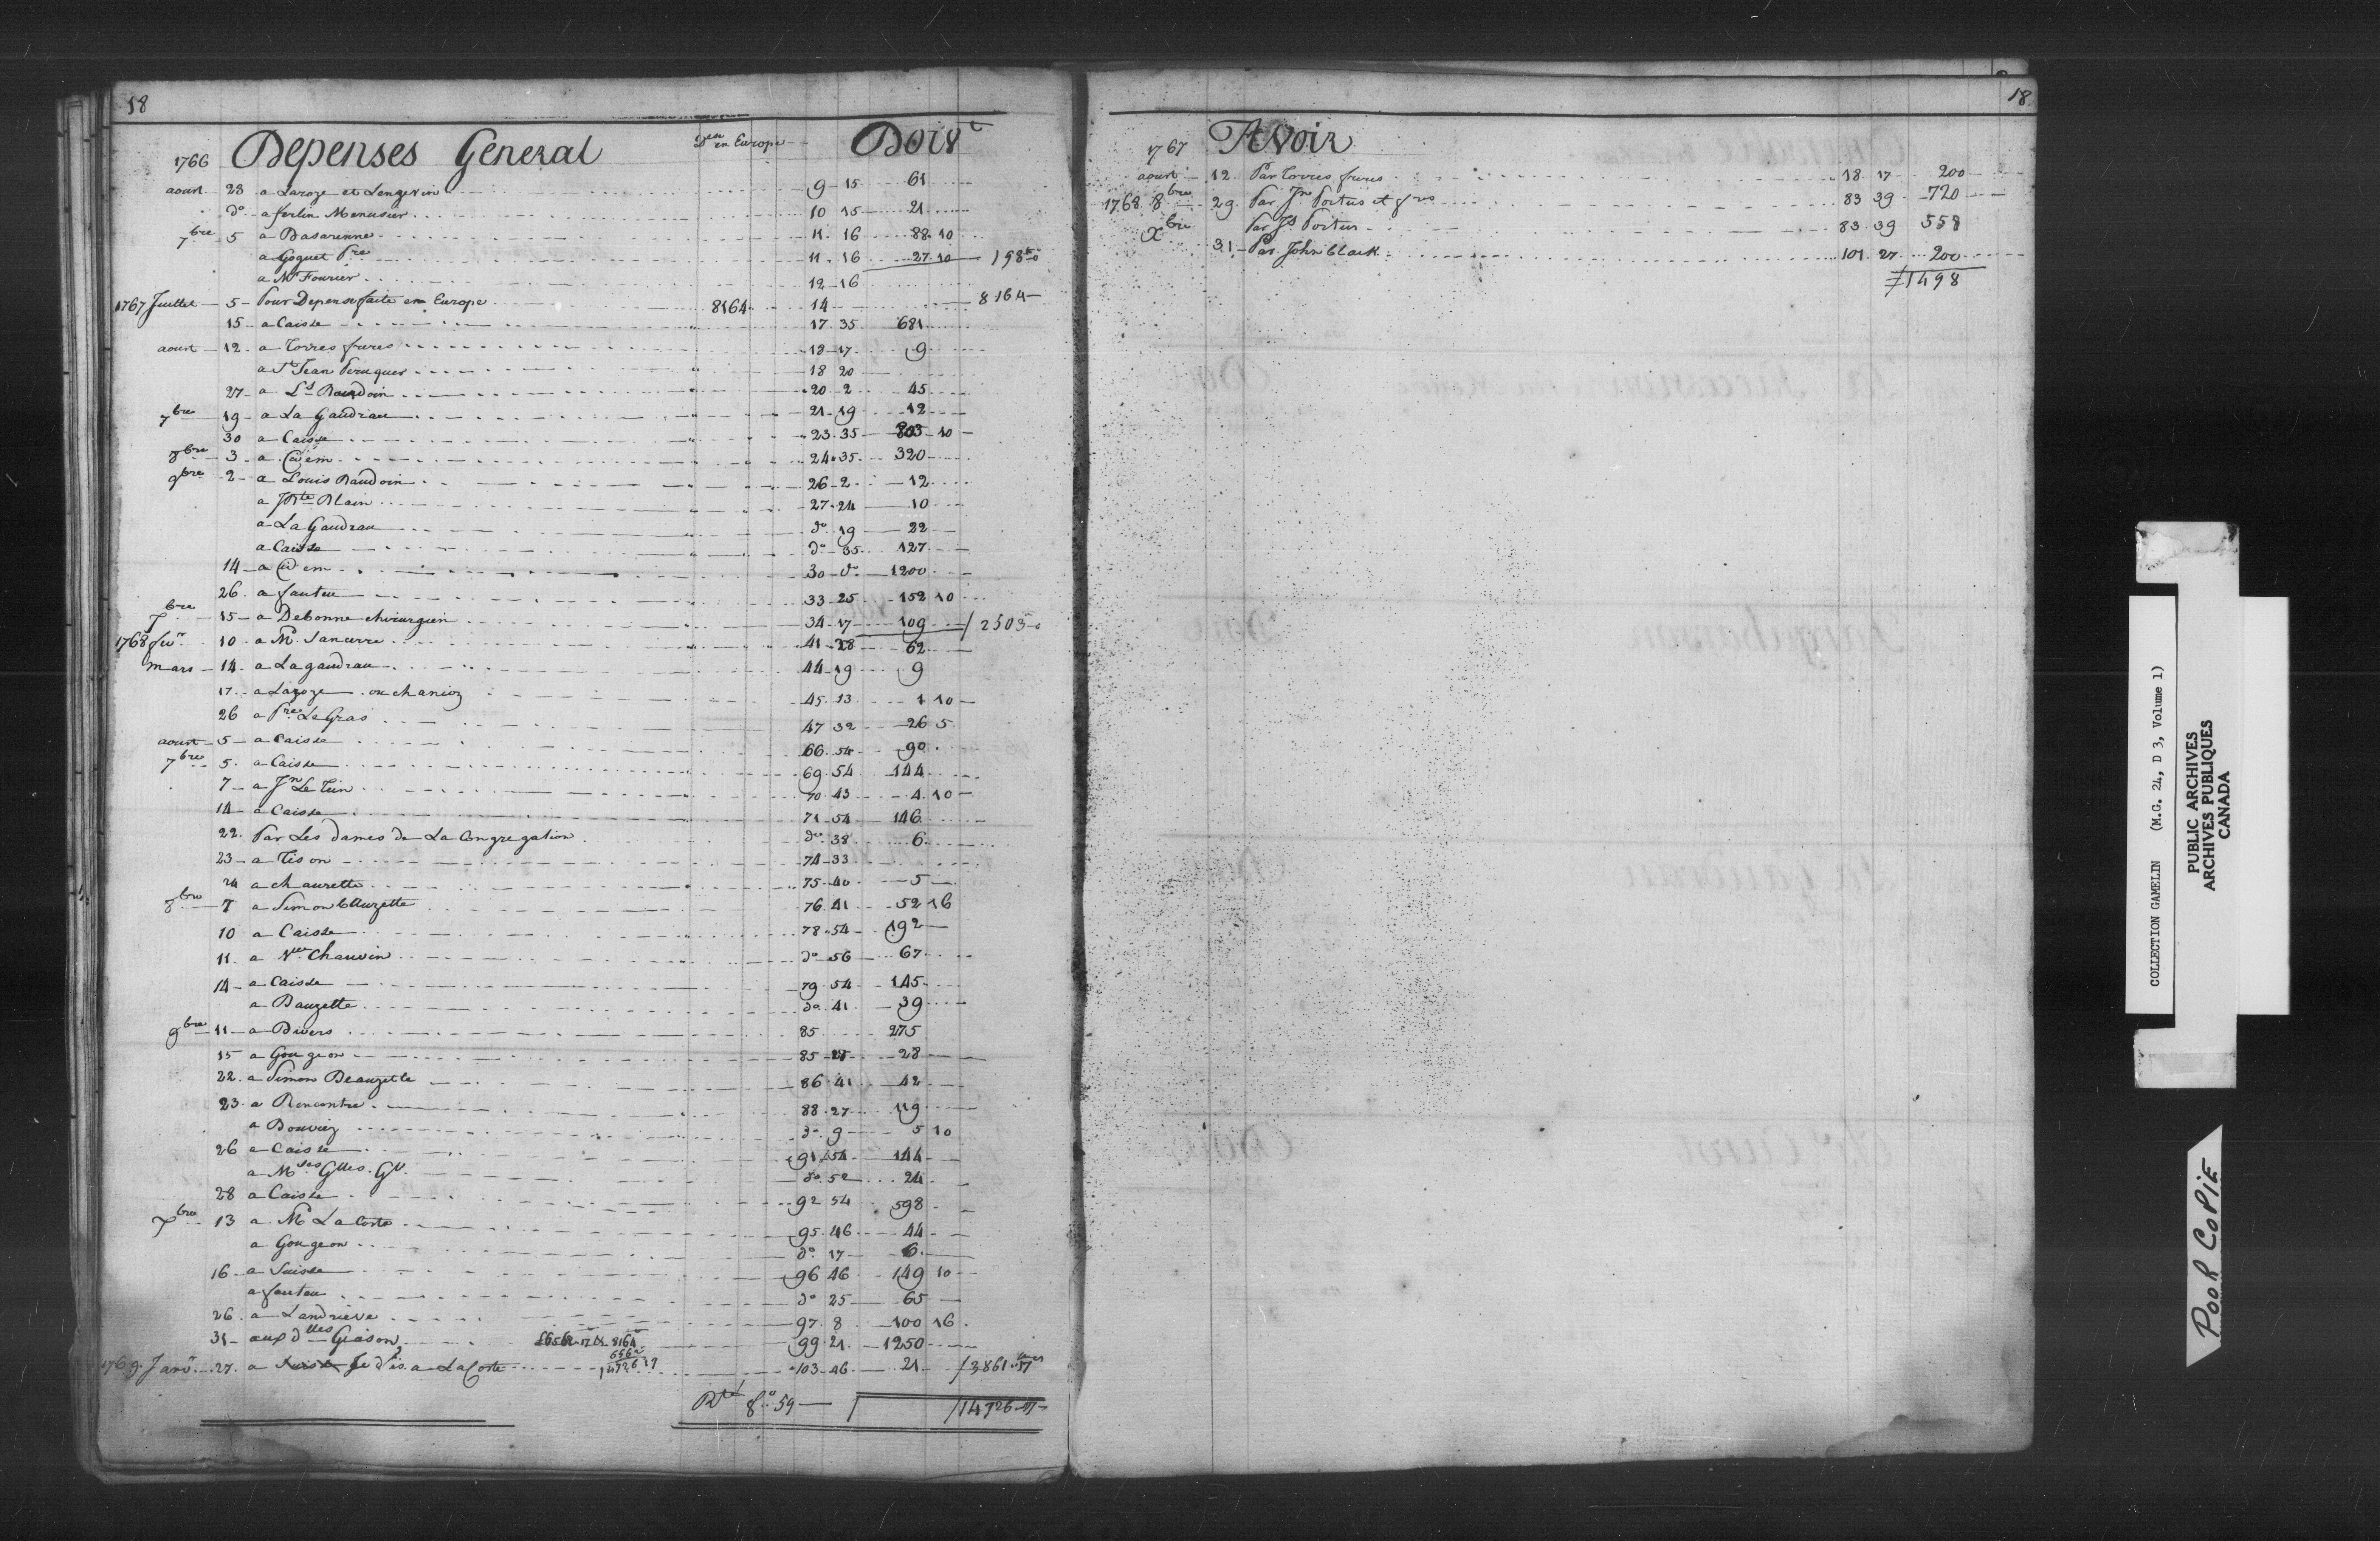 18
1766 Depenses General Dsen en Europe Doivt
aoust 23 a Laroze et Lengevin 9 15 61
do a ferlin Menusier 10 15 21
7bre 5 a Basarenne 11 16 88 10
a Goguet Pre 11 16 27 10 198
a Mr Fourier 12 16
1767 Juillet 5 Pour Depense faite en Europe 8164 14 8164
15 a Caisse 17 35 681
aoust 12 a Torres freres 18 17 9
a St Jean Peruquier 18 20
27 a Ls Baudoin 20 2 45
7bre 19 a La Gaudrau 21 19 12
30 a Caisse 23 35 803 10
8bre 3 a idem 24 35 320
9bre 2 a Louis Baudoin 26 2 12
a JBte Blain 27 24 10
a La Gaudrau do 19 22
a Caisse do 35 127
14 a idem 30 do 1200
26 a fauteu 33 25 152 10
Xbre 15 a Debonne chirurgien 34 17 109 2503
1768 fevr 10 a Mr Sancerre 41 28 62
mars 14 a Lagaudrau 44 19 9
17 a Lazoze ou chanioz 45 13 1 10
26 a Pre Le Gras 47 32 26 5
aoust 5 a Caisse 66 54 90
7bre 5 a Caisse 69 54 144
7 a Jn Le Tun 70 43 4 10
14 a Caisse 71 54 146
22 Par Les dames de La Congregation do 38 6
23 a Tison 74 33
24 a chaurette 75 40 5
8bre 7 a Simon Bauzette 76 41 52 16
10 a Caisse 78 54 192
11 a Vve Chauvin do 56 67
14 a Caisse 79 54 145
a Bauzette do 41 39
9bre 11 a Divers 85 275
15 a Gougeon 85 28
22 a Simon Beauzette 86 41 42
23 a Rencontre 88 27 119
a Bouviez do 9 5 10
26 a Caisse 91 54 144
a Mses Glles. Gv do 52 24
28 a Caisse 92 54 598
Xbre 13 a Mr La Coste 95 46 44
a Gougeon do 17 6
16 a Suisse 96 46 149 10
a fauteu do 25 65
26 a Landrieve 97 8 100 16
31 aux dlles Giason 8164 99 21 1250
1769 Janvr 27 a Je dis a LaCoste 103 46 21 3861 17
Rté fo 59 14726 17
18
1767 Avoir
aoust 12 Par Torres freres 18 17 200
1768 8bre 29 Par Jn Porteus et gres 83 39 720
Xbre Par Js Porteus 83 39 558
31 Par John Clark 101 27 200
1498
COLLECTION GAMELIN (M.G. 24, D 3, Volume 1)
PUBLIC ARCHIVES
ARCHIVES PUBLIQUES
CANADA
POOR COPIE